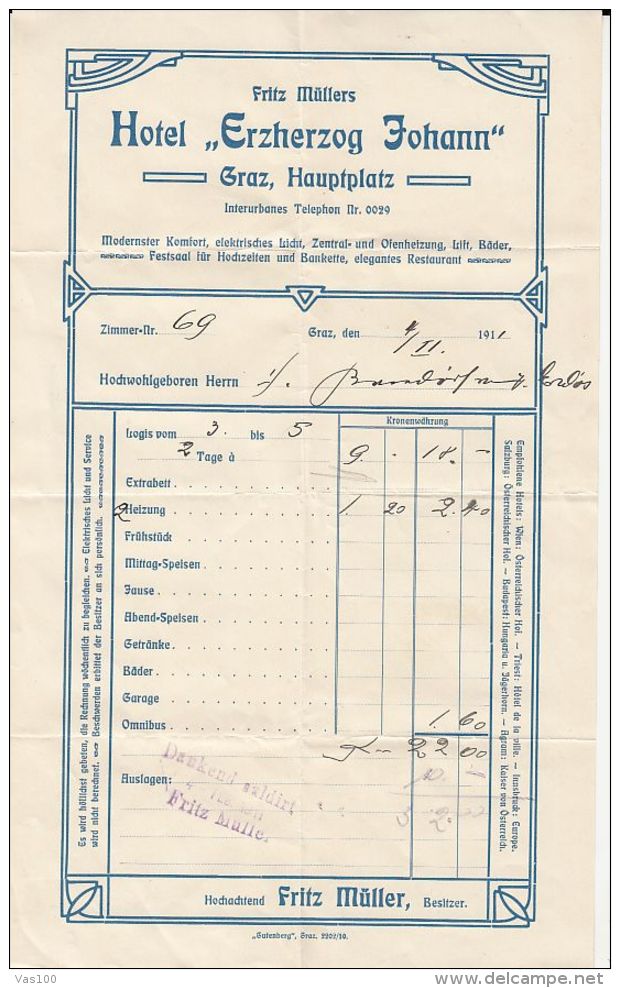 Fritz Müllers
Hotel „Erzherzog Johann“
Graz, Hauptplatz
Interurbanes Telephon Nr. 0029
Modernster Komfort, elektrisches Licht, Zentral- und Ofenheizung, Lift, Bäder,
Festsaal für Hochzeiten und Bankette, elegantes Restaurant
Zimmer-Nr. 69 Graz, den 4/II. 1911
Hochwohlgeboren Herrn
Kronenwährung
Logis vom 3. bis 5
2 Tage à 9 . - 18. -
Extrabett
2 Heizung 1. 20 2. 40
Frühstück
Mittag-Speisen
Jause
Abend-Speisen
Getränke
Bäder
Garage
Omnibus 1. 60
K 22 00
10. -
Auslagen: 32.
Dankend saldirt
Fritz Müller
Es wird höflichst gebeten, die Rechnung wöchentlich zu begleichen. Elektrisches Licht und Service
wird nicht berechnet. Beschwerden erbittet der Besitzer an sich persönlich.
Empfohlene Hotels: Wien: Österreichischer Hof. — Triest: Hôtel de la ville. — Innsbruck: Europe.
Salzburg: Österreichischer Hof. — Budapest: Hungaria u. Jägerhorn. — Agram: Kaiser von Österreich.
Hochachtend Fritz Müller, Besitzer.
„Gutenberg“, Graz. 2202/10.
Vas100
www.delcampe.net